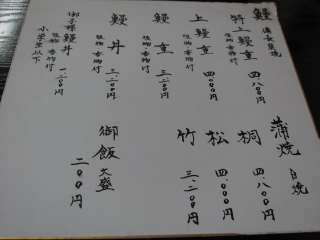 鰻 蒲焼 白焼
特上鰻重 四、八〇〇円
吸物 香物付
上鰻重 四、〇〇〇円
吸物 香物付
鰻重 三、二〇〇円
吸物 香物付
鰻丼 三、二〇〇円
吸物 香物付
御子様鰻丼 一、二〇〇円
吸物 香物付
小学生以下
蒲焼 白焼
桐 四、八〇〇円
松 四、〇〇〇円
竹 三、二〇〇円
御飯大盛 二〇〇円